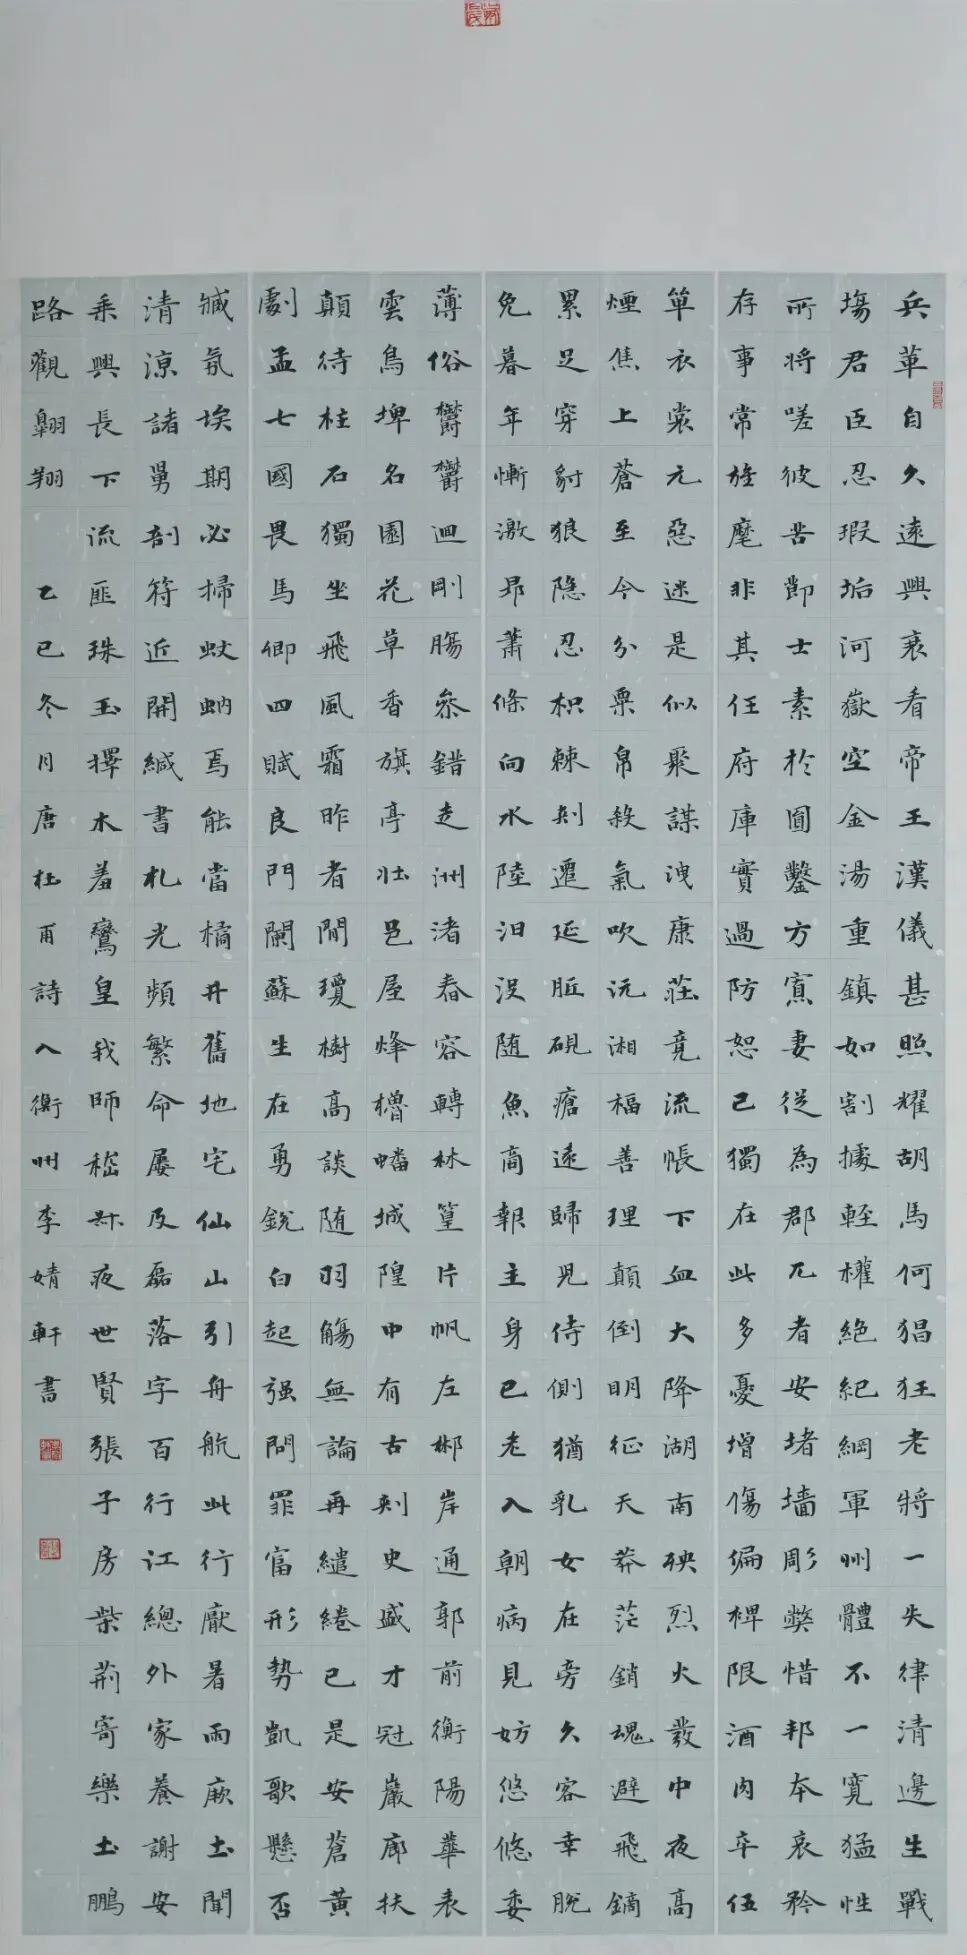 兵革自久遠興衰看帝王漢儀甚照耀胡馬何猖狂老將一失律清邊生戰
場君臣忍瑕垢河嶽空金湯重鎮如割據輕權絕紀綱軍州體不一寬猛性
所將嗟彼苦節士素於圓鑿方寡妻從為郡兀者安堵墻彫弊惜邦本哀矜
存事常旌麾非其任府庫實過防恕己獨在此多憂增傷偏裨限酒肉卒伍
單衣裳元惡迷是似聚謀洩康莊竟流帳下血大降湖南殃烈火發中夜高
煙焦上蒼至今分粟帛殺氣吹沅湘福善理顛倒明征天莽茫銷魂避飛鏑
累足穿豺狼隱忍枳棘刺遷延胝硯瘡遠歸兒侍側猶乳女在旁久客幸脫
免暮年慚激昂蕭條向水陸汩沒随魚商報主身已老入朝病見妨悠悠委
薄俗鬱鬱迴剛腸參錯走洲渚舂容轉林篁片帆左郴岸通郭前衡陽華表
雲鳥埤名園花草香旗亭壯邑屋烽櫓蟠城隍中有古刺史盛才冠巖廊扶
顛待柱石獨坐飛風霜昨者間瓊樹高談随羽觴無論再繾綣已是安蒼黃
劇孟七國畏馬卿四賦良門闌蘇生在勇銳白起强問罪富形勢凱歌懸否
臧氛埃期必掃蚊蚋焉能當橘井舊地宅仙山引舟航此行厭暑雨厥土聞
清涼諸舅剖符近開緘書札光頻繁命屢及磊落字百行江總外家養謝安
乘興長下流匪珠玉擇木羞鸞皇我師嵇叔夜世賢張子房柴荊寄樂土鵬
路觀翱翔 乙巳冬月唐杜甫詩入衡州李婧軒書